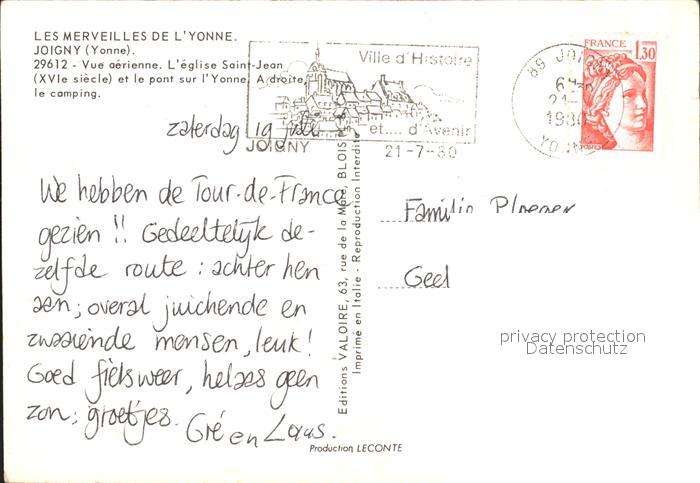 LES MERVEILLES DE L'YONNE.
JOIGNY (Yonne).
29612 - Vue aérienne. L'église Saint-Jean
(XVIe siècle) et le pont sur l'Yonne. A droite,
le camping.
Ville d'Histoire
et.... d'Avenir
JOIGNY
21-7-80
89 JOIGNY
21-
1980
YONNE
FRANCE
1,30
POSTES
zaterdag 19 juli
We hebben de Tour-de-France
gezien !! Gedeeltelijk de-
zelfde route : achter hen
aan; overal juichende en
zwaaiende mensen, leuk!
Goed fietsweer, helaas geen
zon; groetjes.
Gré en
Editions VALOIRE, 63, rue de la Mare, BLOIS
Imprimé en Italie - Reproduction Interdite
Familie
Geel
privacy protection
Datenschutz
Production LECONTE